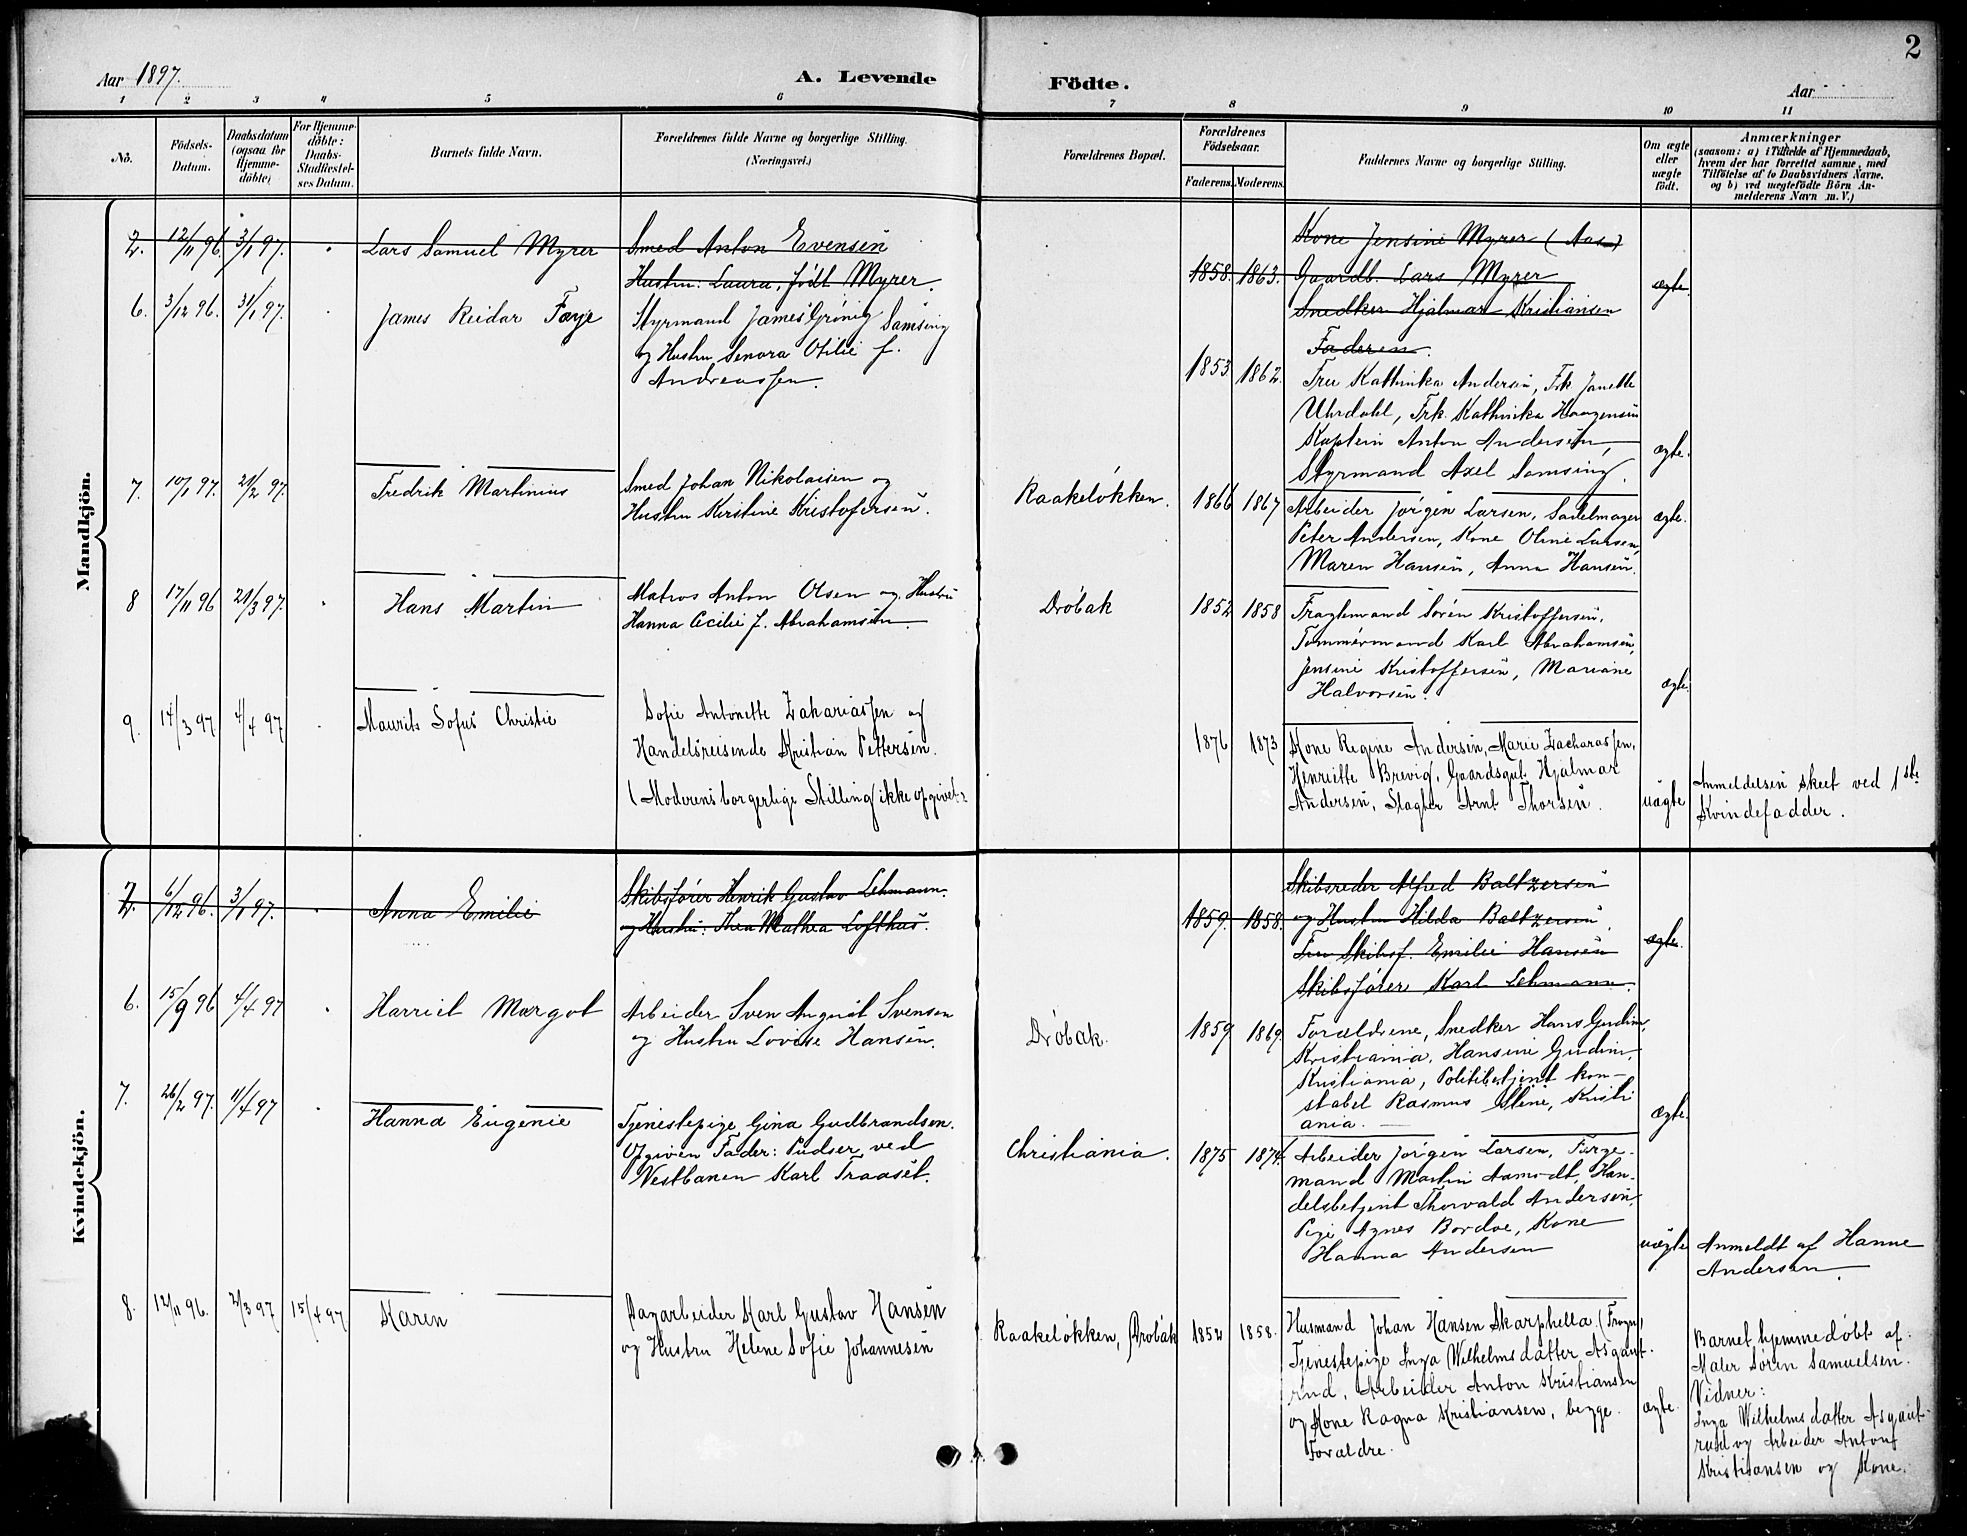 2
Aar 1897.
A. Levende Födte.
Aar
1 2 3 4 5 6 7 8 9 10 11
No.
Födsels-
Datum.
Daabsdatum
(ogsaa for
Hjemme-
döbte)
For Hjemme-
döbte:
Daabs-
Stadfæstel-
ses Datum.
Barnets fulde Navn.
Forældrenes fulde Navne og borgerlige Stilling.
(Næringsvei.)
Forældrenes Bopæl.
Forældrenes
Födselsaar.
Faderens. Moderens.
Faddernes Navne og borgerlige Stilling.
Om ægte
eller
uægte
födt.
Anmærkninger
(saasom: a) i Tilfælde af Hjemmedaab,
hvem der har forrettet samme, med
Tilföielse af to Daabsvidners Navne.
og b) ved uegtefödte Börn An-
melderens Navn m. V.)
Mandkjön.
2. 12/11 96. 3/1 97. Lars Samuel Myrer
Smed Anton Evensen
Hustru: Laura, född Myrer
1858. 1863.
Kone Jensine Myrer (Aas)
Gaardb. Lars Myrer
Snedker Hjalmar Kristiansen
Faderen.
ægte.
6. 3/12 96. 31/1 97. James Reidar Faye
Styrmand James Grönig Samsing
og Hustru Senora Otilie f.
Andreassen.
1853 1862.
Fru Kathinka Andersen, Frk Janette
Uhrdahl, Frk. Kathinka Haagensen
Kaptein Anton Andersen,
Styrmand Axel Samsing.
ægte.
7. 10/1 97. 21/2 97. Fredrik Martinius
Smed Johan Nikolaisen og
Hustru Kirstine Kristofersen.
Raakelökken.
1866 1867
Arbeider Jörgen Larsen, Sadelmager
Peter Andersen, Kone Oline Larsen,
Maren Hansen, Anna Hansen.
ægte.
8 17/11 96 21/3 97. Hans Martin
Matros Anton Olsen og Hustru
Hanna Cecilie f. Abrahamsen
Dröbak
1852 1858
Fragtemand Sören Kristoffersen,
Tømmermand Karl Abrahamsen,
Jensine Kristoffersen, Mariane
Halvorsen.
ægte.
9. 14/3 97 4/4 97 Maurits Sofus Christie
Sofie Antonette Zahariassen og
Handelsreisende Kristian Pettersen.
(Moderens borgerlige Stilling ikke opgivet.)
1876 1873
Kone Regine Andersen, Marie Zacharassen,
Henriette Brevig, Gaardsgut Hjalmar
Andersen, Slagter Arnt Thorsen.
uägte
Anmeldelsen skeet ved 1ste
Kvindefadder.
Kvindekjön.
2. 6/12 96. 3/1 97. Anna Emilie
Skibsförer Henrik Gustav Lehmann.
og Hustru: Thea Mathea Lofthus.
1859. 1858.
Skibsreder Alfred Baltzersen
og Hustru Hilda Baltzersen
Fru Skibsf. Emilie Hansen
Skibsförer Karl Lehmann.
ægte.
6. 15/9 96 4/4 97 Harriet Margot
Arbeider Sven August Svensen
og Hustru Lovise Hansen.
Dröbak.
1859 1869.
Forældrene, Snedker Hans Gudim,
Kristiania, Hansine Gudim,
Kristiania, Politibetjent kon-
stabel Rasmus Stene, Kristi
ania.
ægte.
7. 26/2 97. 11/4 97 Hanna Eugenie
Tjenestepige Gina Gudbrandsen.
Opgiven Fader: Pudser ved
Vestbanen Karl Traaset.
Christiania.
1875 1874.
Arbeider Jörgen Larsen, Færge-
mand Martin Aamodt, Han-
delsbetjent Thorvald Andersen,
Pige Agnes Bordoe, Kone
Hanna Andersen
uægte
Anmeldt af Hanne
Andersen.
8. 12/11 96. 2/3 97 15/4 97 Karen
Dagarbeider Karl Gustav Hansen
og Hustru Helene Sofie Johannesen
Raakelökken, Dröbak
1852 1858.
Husmand Johan Hansen Skarphella (Frogn),
Tjenestepige Inga Wilhelmsdatter Asgaut-
rud, Arbeider Anton Kristiansen
og Kone Ragna Kristiansen, begge
Forældre.
ægte.
Barnet hjemmedöbt af
Maler Sören Samuelsen.
Vidner:
Inga Wilhelmsdatter Asgaut-
rud og Arbeider Anton
Kristiansen og Kone.